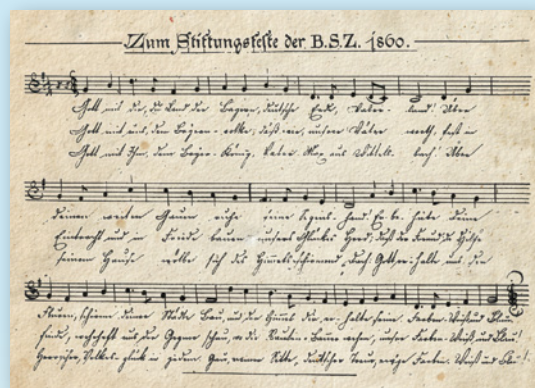 Zum Stiftungsfeste der B.S.Z. 1860.
Gott mit dir, du Land der Bayern, deutsche Erde, Vater- land! Über
Gott mit uns, dem Bayern- volke, daß wir, unsrer Väter werth, fest in
Gott mit Ihm, dem Bayer- König, Vater Max aus Wittels- bach! Über
deinen weiten Gauen ruhe seine Segens- hand! Er be- hüte deine
Eintracht und in Friede bauen unsres Glückes Herd; daß der Freund da Hilfe
seinem Hause wölbe sich des Himmels schirmend Dach! Gott er- halte uns den
Fluren, schirme deiner Städte Bau, und dir Himmels er- halte seiner Farben- Weiß und Blau!
finde, uns der Gegner schau, wo die Rauten- Banner wehen, unsre Farben- Weiß und Blau!
Herrscher, Volkes- glück in jedem Gau, reine Sitte, deutsche Treue, ewge Farben- Weiß und Blau!